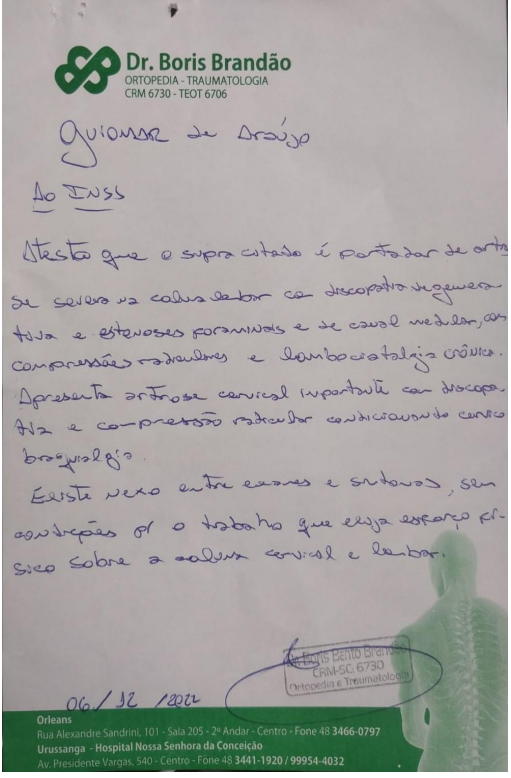 Dr. Boris Brandão
ORTOPEDIA - TRAUMATOLOGIA
CRM 6730 - TEOT 6706
Guiomar de Araújo
Ao INSS
Atesto que o supra citado é portador de artro
se severa na coluna lombar com discopatia degenera
tiva e estenoses foraminais e de canal medular, com
compressões radiculares e lombociatalgia crônica.
Apresenta artrose cervical importante com discopa
tia e compressão radicular condicionando cervico
braquialgia.
Existe nexo entre exames e sintomas, sem
condições p/ o trabalho que exija esforço fí-
sico sobre a coluna cervical e lombar.
Dr. Boris Bento Brandão
CRM-SC 6730
Ortopedia e Traumatologia
06/12/2022
Orleans
Rua Alexandre Sandrini, 101 - Sala 205 - 2º Andar - Centro - Fone 48 3466-0797
Urussanga - Hospital Nossa Senhora da Conceição
Av. Presidente Vargas, 540 - Centro - Fone 48 3441-1920 / 99954-4032